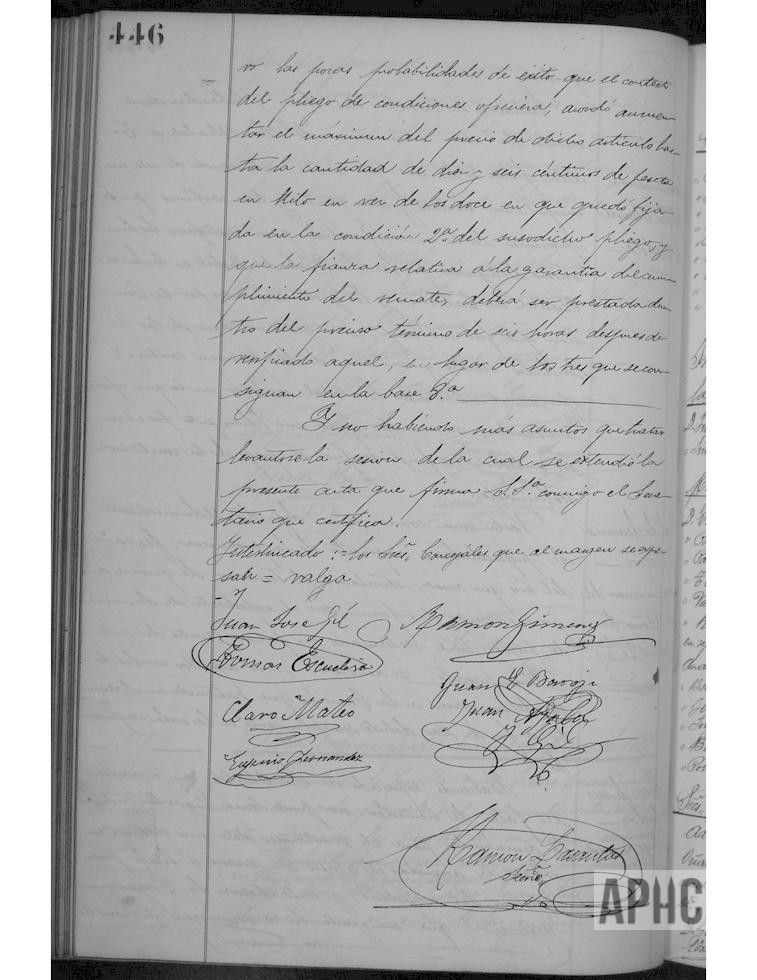 446
ro las pocas probabilidades de éxito que el contexto
del pliego de condiciones ofreciera, acordó aumen-
tar el máximum del precio de dicho artículo has-
ta la cantidad de diez y seis céntimos de peseta
en kilo en vez de los doce en que quedó fija-
da en la condición 2ª del susodicho pliego, y
que la fianza relativa á la garantia del cum-
plimiento del remate, deberá ser prestada den-
tro del preciso término de seis horas despues de
verificado aquel, en lugar de las tres que se con-
signan en la base 8.ª
Y no habiendo más asuntos que tratar
levantose la sesion de la cual se extendió la
presente acta que firma S.Sª conmigo el Secre-
tario que certifica.
Interlineado:=los Sres. Concejales que al margen se expre-
san = valga
Juan José Gil Ramon Gimeno
Tomas Escudero
Juan Baroja
Claro Mateo Juan
y Gil
Eugenio Fernandez
Ramon Lasantas
Srio
APHC